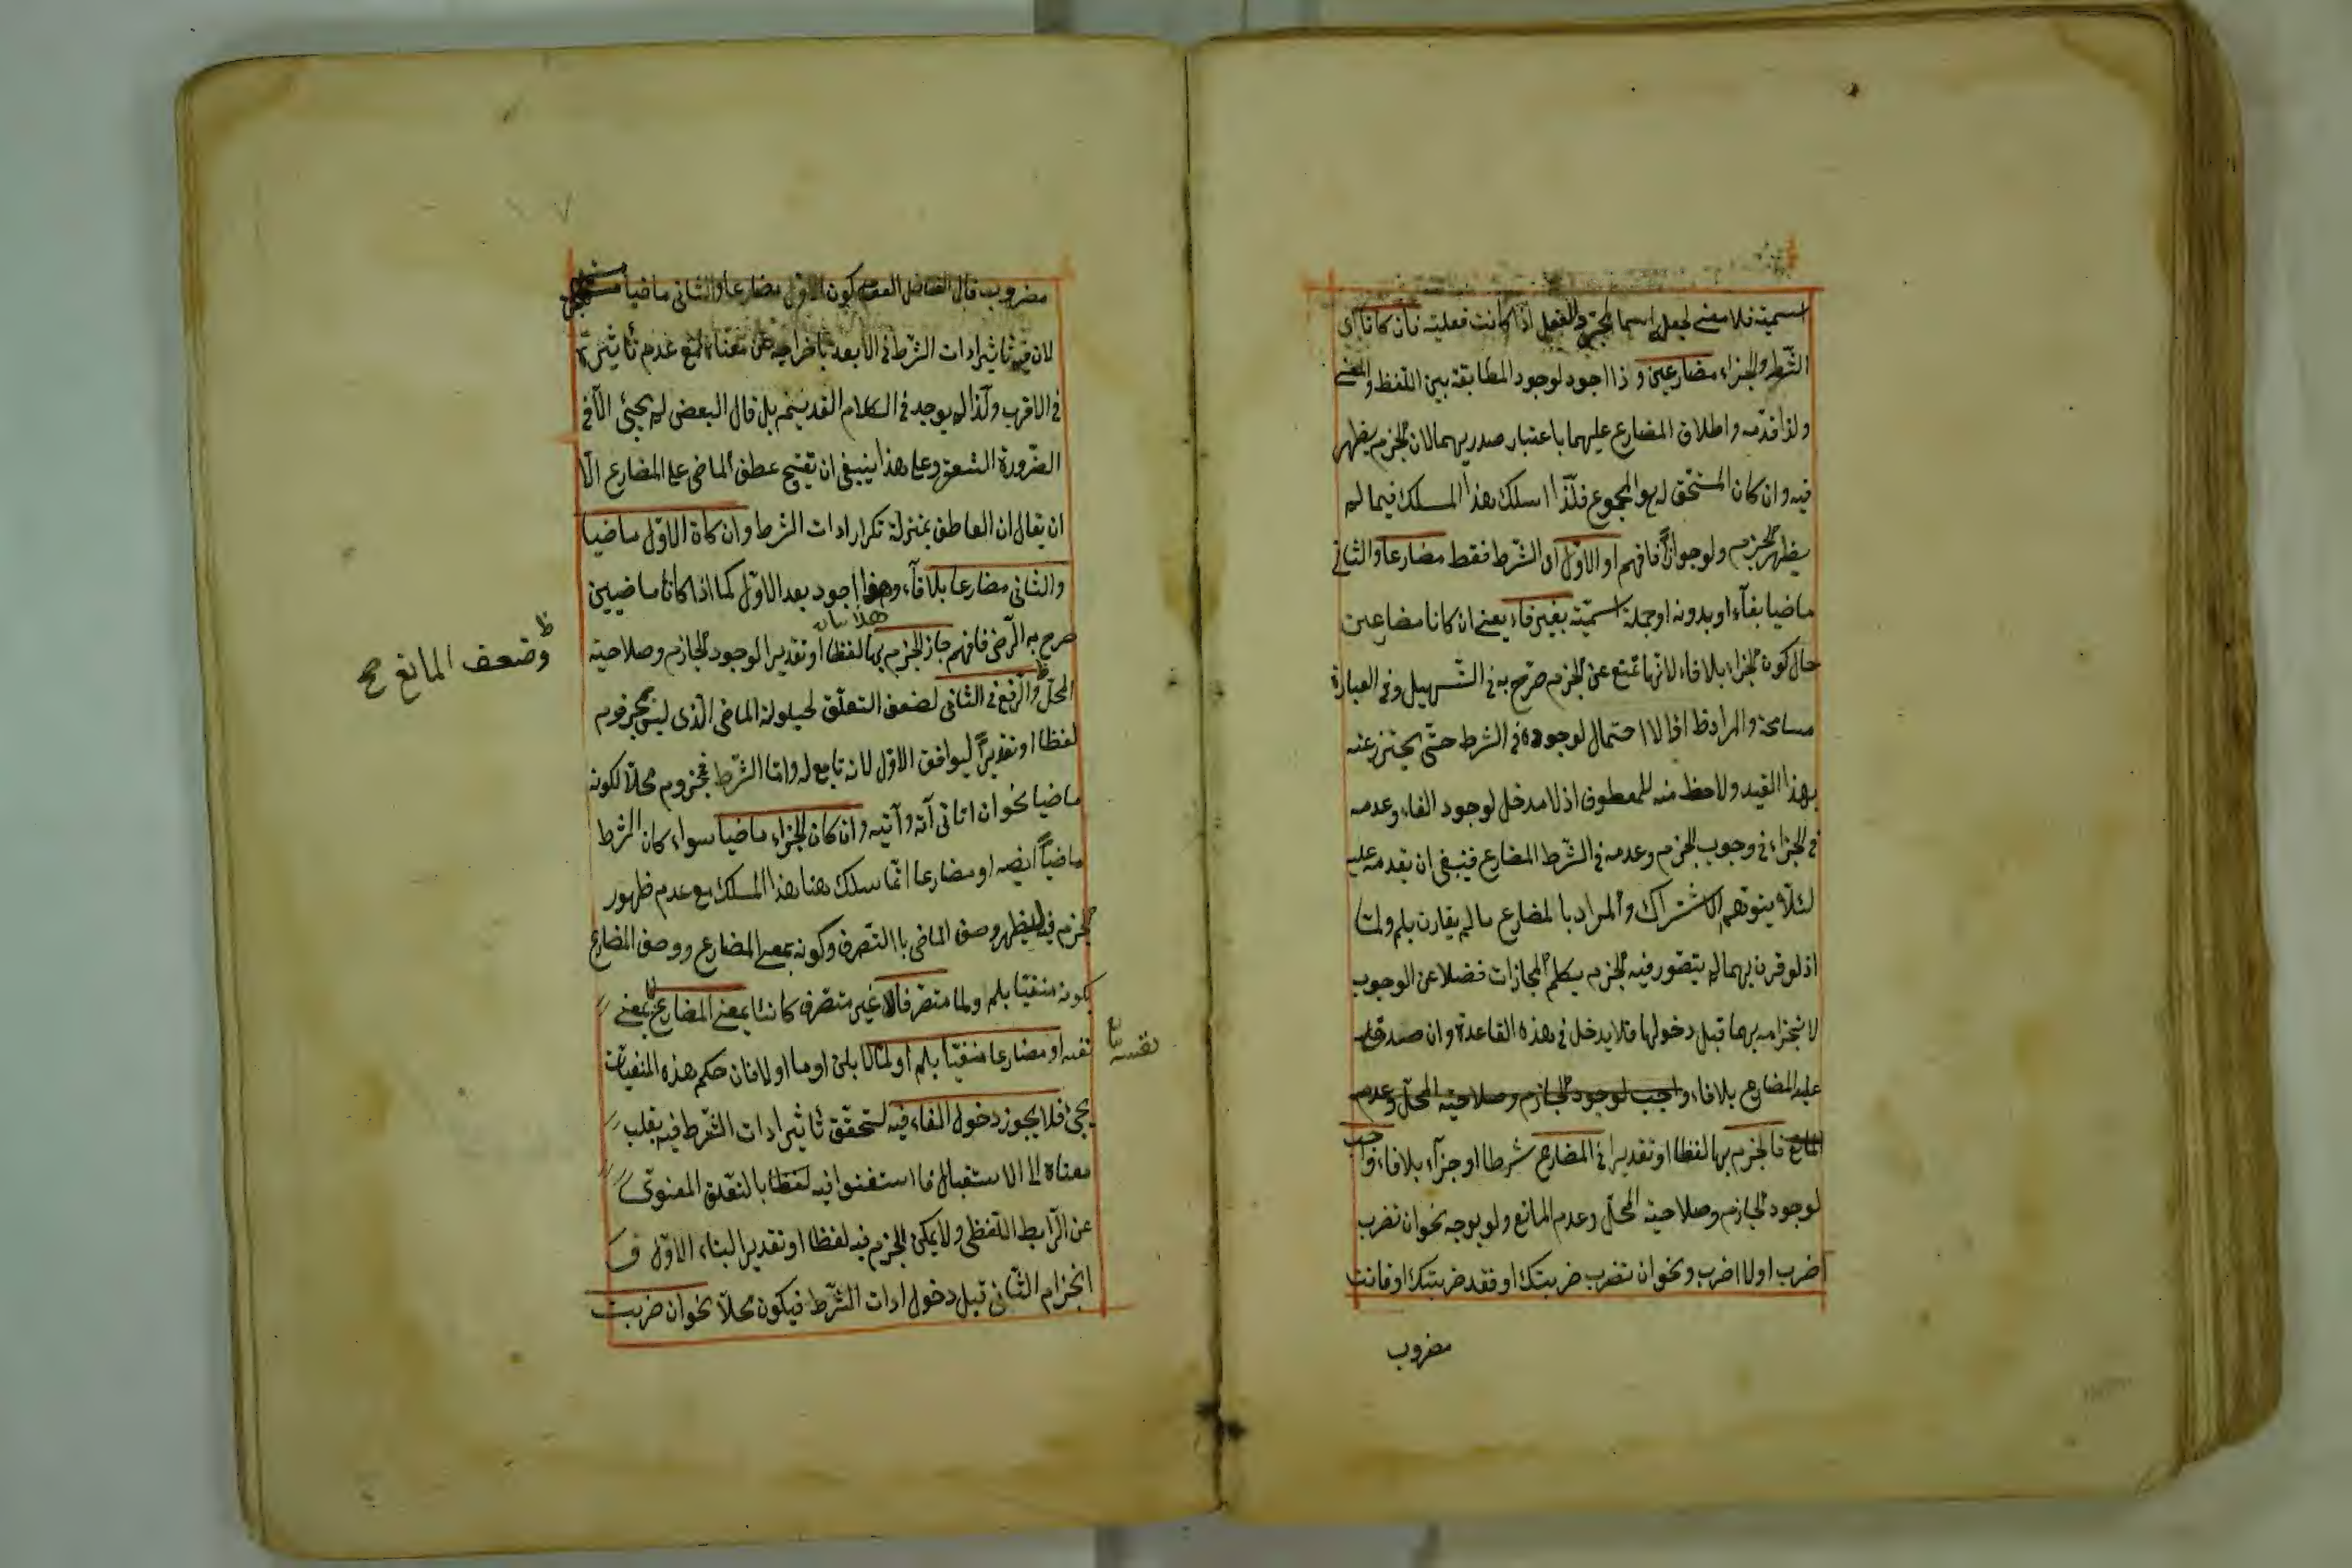 اسمية فلا معنى لجعل اسما لجزء الفعل اذا كانت فعلية فان كانا اى
الشرط والجزاء مضارعين وذا اجود لوجود المطابقة بين اللفظ والمعنى
ولذا قدمه واطلاق المضارع عليهما باعتبار صدريهما لان الجزم يظهر
فيه وان كان المستحق له هو المجموع فلذا اسلك هذا المسلك فيما لم
يظهر الجزم ولو جوازا فافهم او الاول اى الشرط فقط مضارعا والثانى
ماضيا بفاء او بدونه او جملة اسمية بغير فاء يعنى ان كانا مضارعين
حال كون الجزاء بلا فاء لانها تمنع عن الجزم صرح به فى التسهيل وفى العبارة
مسامحة والمراد ظ اذ لا احتمال لوجوده فى الشرط حتى يحترز عنه
بهذا القيد ولا حظ منه للمعطوف اذ لا مدخل لوجود الفاء وعدمه
فى الجزاء فى وجوب الجزم وعدمه فى الشرط المضارع فينبغى ان يقدمه عليه
لئلا يتوهم الاشتراك والمراد بالمضارع ما لم يقارن بلم ولما
اذ لو قرن بهما لم يتصور فيه الجزم بكلم المجازات فضلا عن الوجوب
لانجزامه بهما قبل دخولها فلا يدخل فى هذه القاعدة وان صدق
عليه المضارع بلا فاء واجب لوجود الجازم وصلاحية المحل وعدم
المانع فالجزم بها لفظا او تقديرا فى المضارع شرطا او جزاء بلا فاء واجب
لوجود الجازم وصلاحية المحل وعدم المانع ولو بوجه نحو ان تضرب
اضرب او لا اضرب ونحو ان تضرب ضربتك او فقد ضربتك او فانت
مضروب
مضروب قال الفاضل العصام كون الاول مضارعا والثانى ماضيا
لان فيه تاثير ادات الشرط فى الابعد باخراجه عن معناه مع عدم تأثيره
فى الاقرب ولذا لم يوجد فى الكلام القديم بل قال البعض لم يجئ الا فى
الضرورة الشعر وعلى هذا ينبغى ان يقبح عطف الماضى على المضارع الا
ان يقال ان العاطف بمنزلة تكرار ادات الشرط وان كان الاول ماضيا
والثانى مضارعا بلا فاء وهذا اجود بعد الاول كما اذا كانا ماضيين
صرح به الرضى فافهم جاز الجزم بها لفظا او تقديرا لوجود الجازم وصلاحية
وضعف المانع صح
المحل والرفع فى الثانى لضعف التعلق لحيلولة الماضى الذى ليس بمجزوم
لفظا او تقديرا ليوافق الاول لانه تابع له واما الشرط فمجزوم محلا لكونه
ماضيا نحو ان اتانى آته وآتيه وان كان الجزاء ماضيا سواء كان الشرط
ماضيا ايضه او مضارعا انما سلك هنا هذا المسلك مع عدم ظهور
الجزم فيه ليظهر وصف الماضى با التصرف وكونه بمعنى المضارع ووصف المضارع
بكونه منفيا بلم ولما متصرفا لا غير متصرف كائنا بمعنى المضارع لا بمعنى
نفسه او مضارعا منفيا بلم او لما لا بلن او ما او لا فان حكم هذه المنفيات
نفسه
يجئ فلا يجوز دخول الفاء فيه لتحقق تأثير ادات الشرط فيه بقلب
معناه الى الاستقبال فاستغنوا فيه لفظا بالتعلق المعنوى
عن الرابط اللفظى ولا يمكن الجزم فيه لفظا او تقديرا لبناء الاول و
انجزام الثانى قبل دخول ادات الشرط فيكون محلا نحو ان ضربت